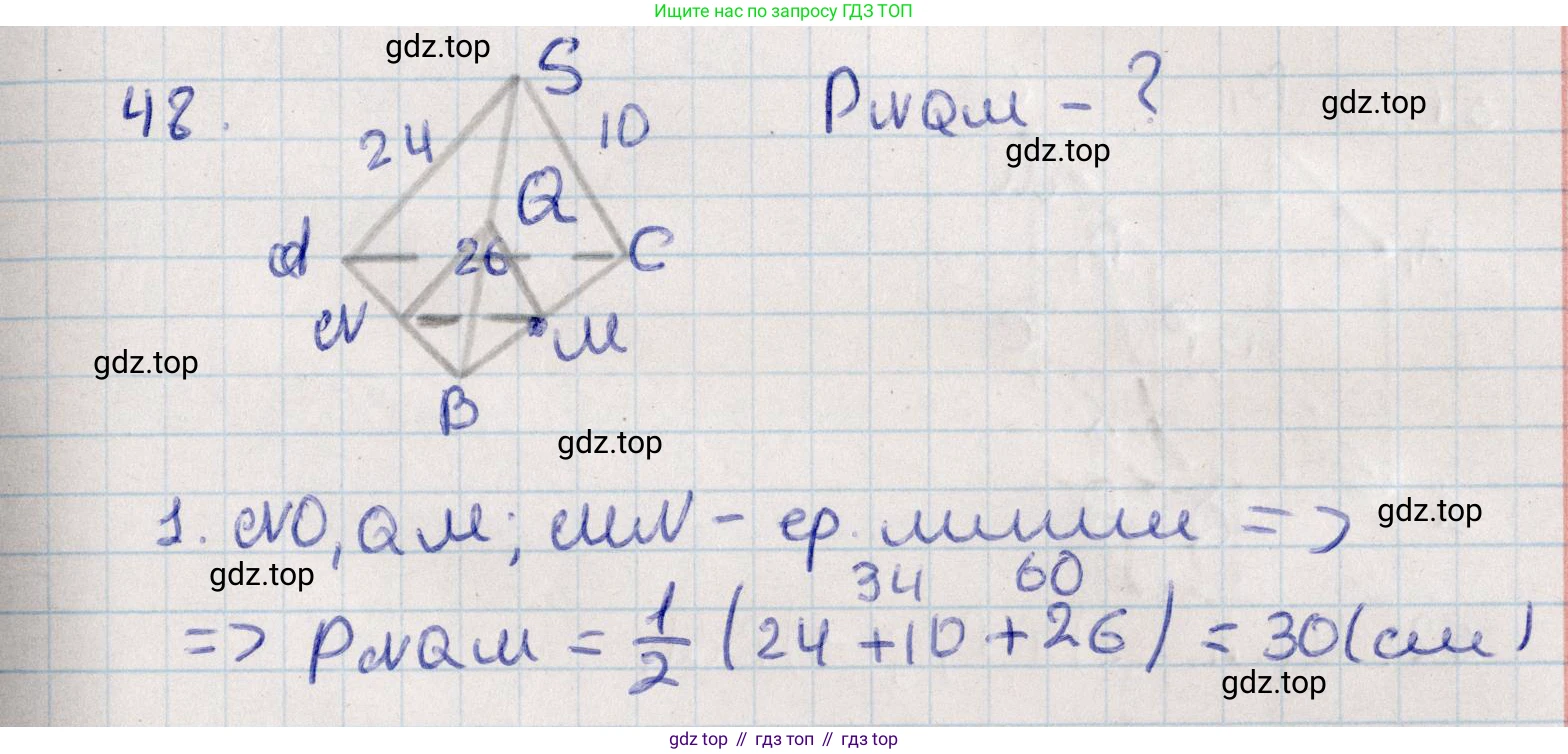 Ищите нас по запросу ГДЗ ТОП
gdz.top
S
48.
24
10
PNQM - ?
gdz.top
gdz.top
Q
A
26
C
N
M
gdz.top
B
gdz.top
1. NQ, QM; MN - ср. линии =>
gdz.top
gdz.top
34 60
=> PNQM = 1/2 (24 + 10 + 26) = 30 (см)
gdz.top
gdz top // гдз топ // гдз top